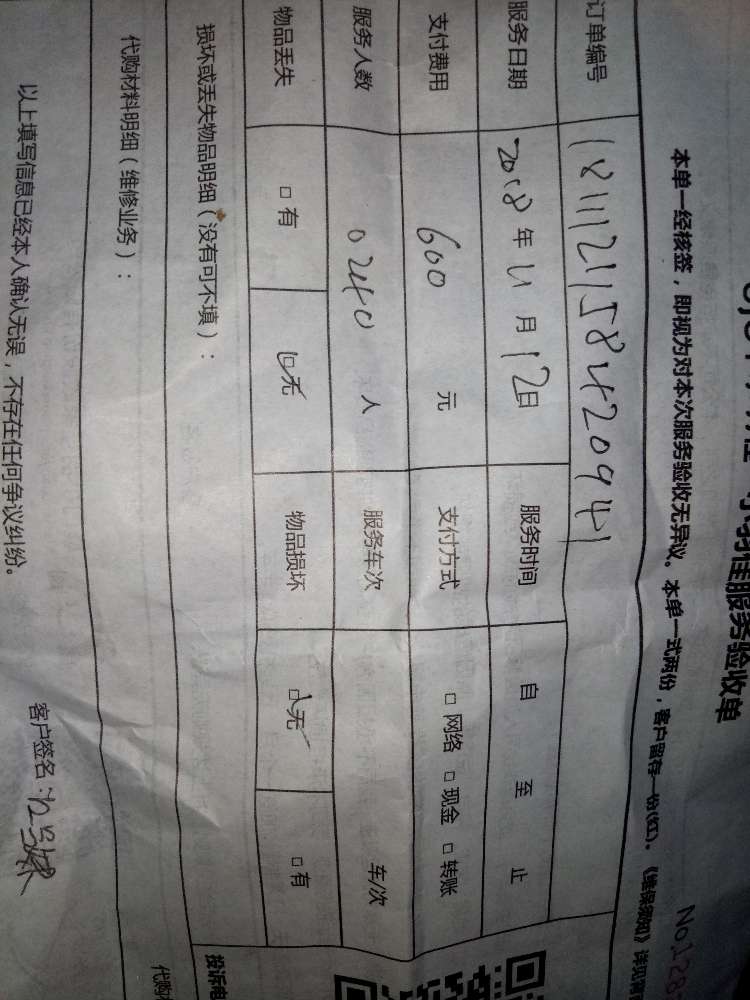 服务验收单
No.128
本单一经核签，即视为对本次服务验收无异议。本单一式两份，客户留存一份(红)。《维保须知》详见背
订单编号
服务日期 2018年11月12日 服务时间 自 至 止
支付费用 600 元 支付方式 □网络 □现金 □转账
服务人数 人 服务车次 车/次
物品丢失 □有 ☑无 物品损坏 ☑无 □有
损坏或丢失物品明细（没有可不填）：
投诉电
代购材料明细（维修业务）：
代购材
以上填写信息已经本人确认无误，不存在任何争议纠纷。
客户签名：